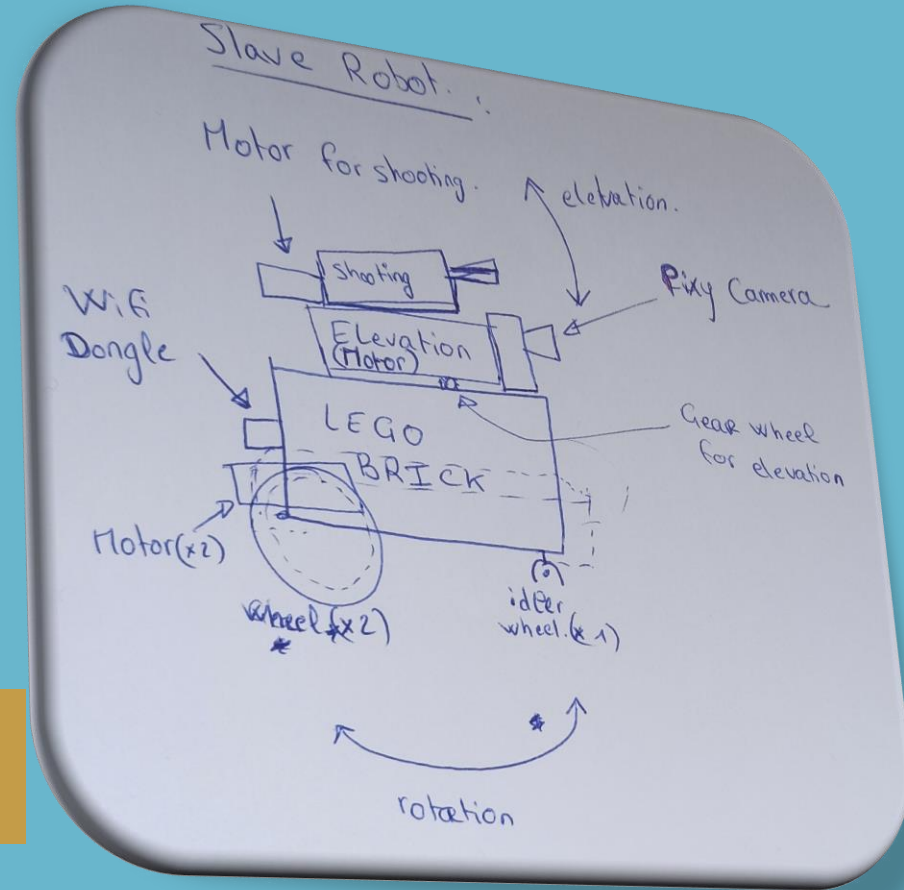 Slave Robot.
Motor for shooting.
elevation.
Shooting
Pixy Camera
WiFi
Dongle
Elevation
(Motor)
LEGO
BRICK
Gear wheel
for elevation
Motor(x2)
wheel (x2)
idler
wheel.(x1)
rotation